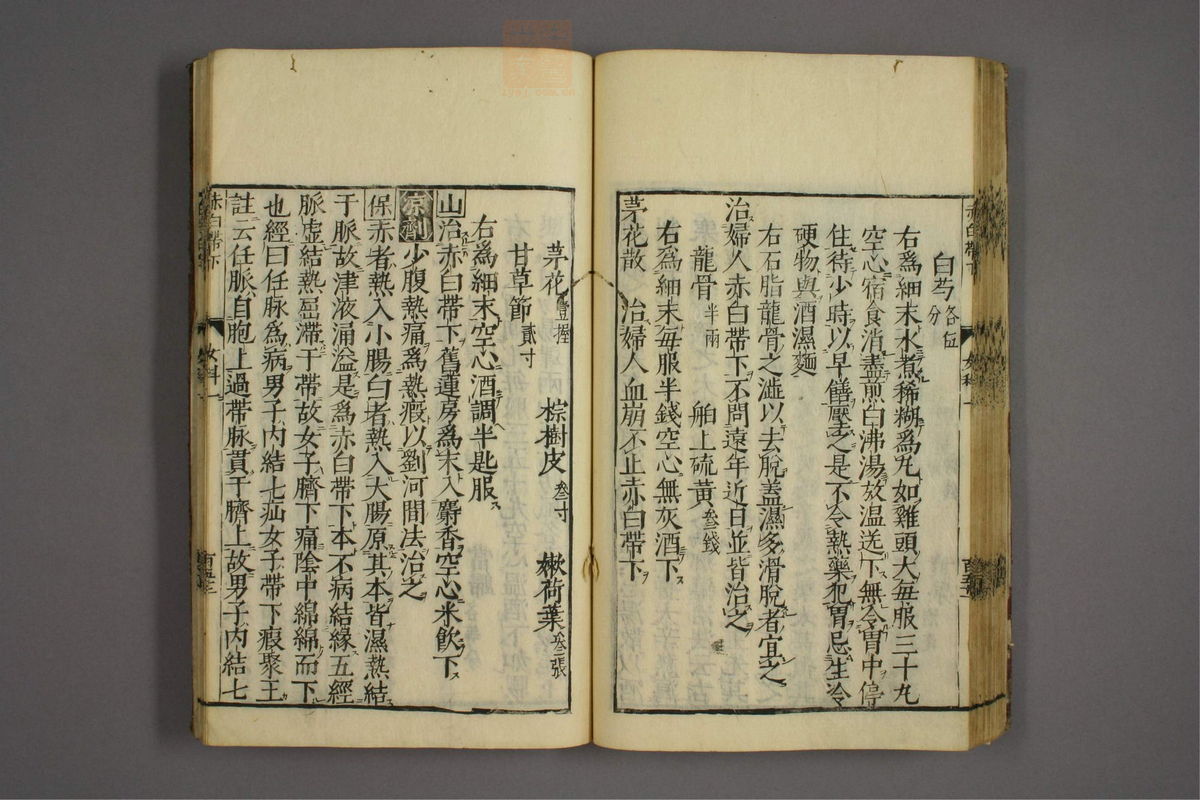 白芍 各伍分
右爲細末水煮稀糊爲丸如雞頭大每服三十丸
空心宿食消盡煎白沸湯放温送下無令胃中停
住待少時以早饍壓之是不令熱藥犯胃忌生冷
硬物與酒濕麵
右石脂龍骨之澁以去脫盖濕多滑脫者宜之
治婦人赤白帶下不問遠年近日並皆治之
龍骨 半兩 舶上硫黄 叁錢
右爲細末每服半錢空心無灰酒下
茅花散 治婦人血崩不止赤白帶下
赤白帶下 女科
茅花 壹握 棕樹皮 叁寸 嫰荷葉 叁張
甘草節 貳寸
右爲細末空心酒調半匙服
山 治赤白帶下舊蓮房爲末入麝香空心米飲下
凉劑 少腹熱痛爲熱癥以劉河間法治之
保 赤者熱入小腸白者熱入大腸原其本皆濕熱結
于脈故津液涌溢是爲赤白帶下本不病結緣五經
脈虚結熱屈滯于帶故女子臍下痛陰中綿綿而下
也經曰任脉爲病男子内結七疝女子帶下瘕聚王
註云任脈自胞上過帶脉貫于臍上故男子内結七
赤白帶下 女科 百五十三